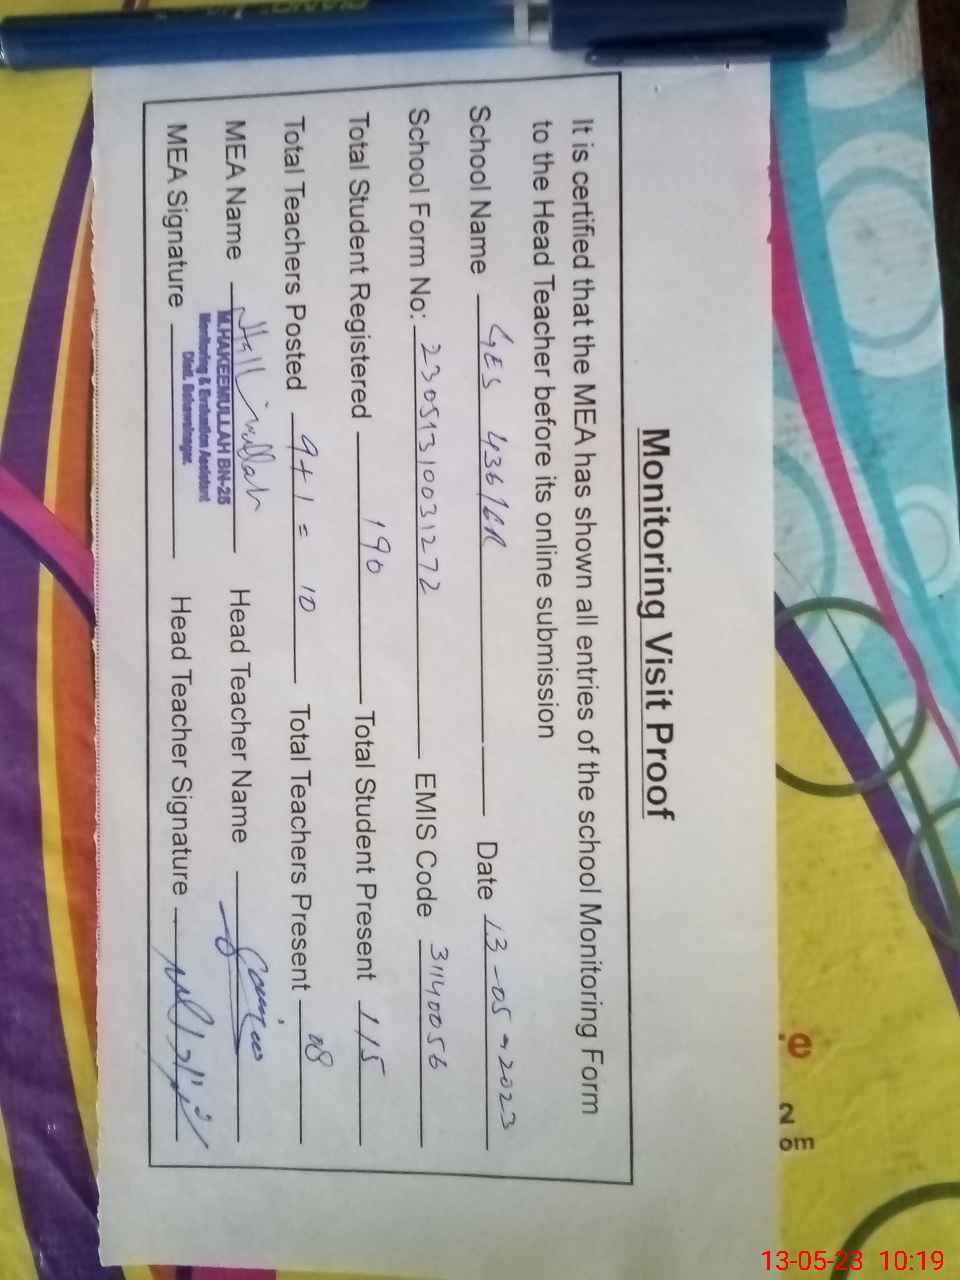 Monitoring Visit Proof
It is certified that the MEA has shown all entries of the school Monitoring Form
to the Head Teacher before its online submission
School Name GES 436/6R Date 13-05-2023
School Form No: 23051310031272 EMIS Code 31140056
Total Student Registered 190 Total Student Present 115
Total Teachers Posted 9+1 = 10 Total Teachers Present 08
MEA Name Head Teacher Name
M.HAKEEMULLAH BN-25
Monitoring & Evaluation Assistant
Distt. Bahawalnagar.
MEA Signature Head Teacher Signature
e
2
om
13-05-23 10:19